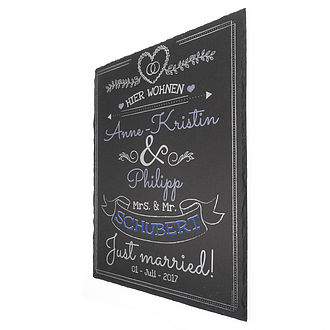 HIER WOHNEN
Anne-Kristin
&
Philipp
Mrs. & Mr.
SCHUBERT
Just married!
01 - Juli - 2017